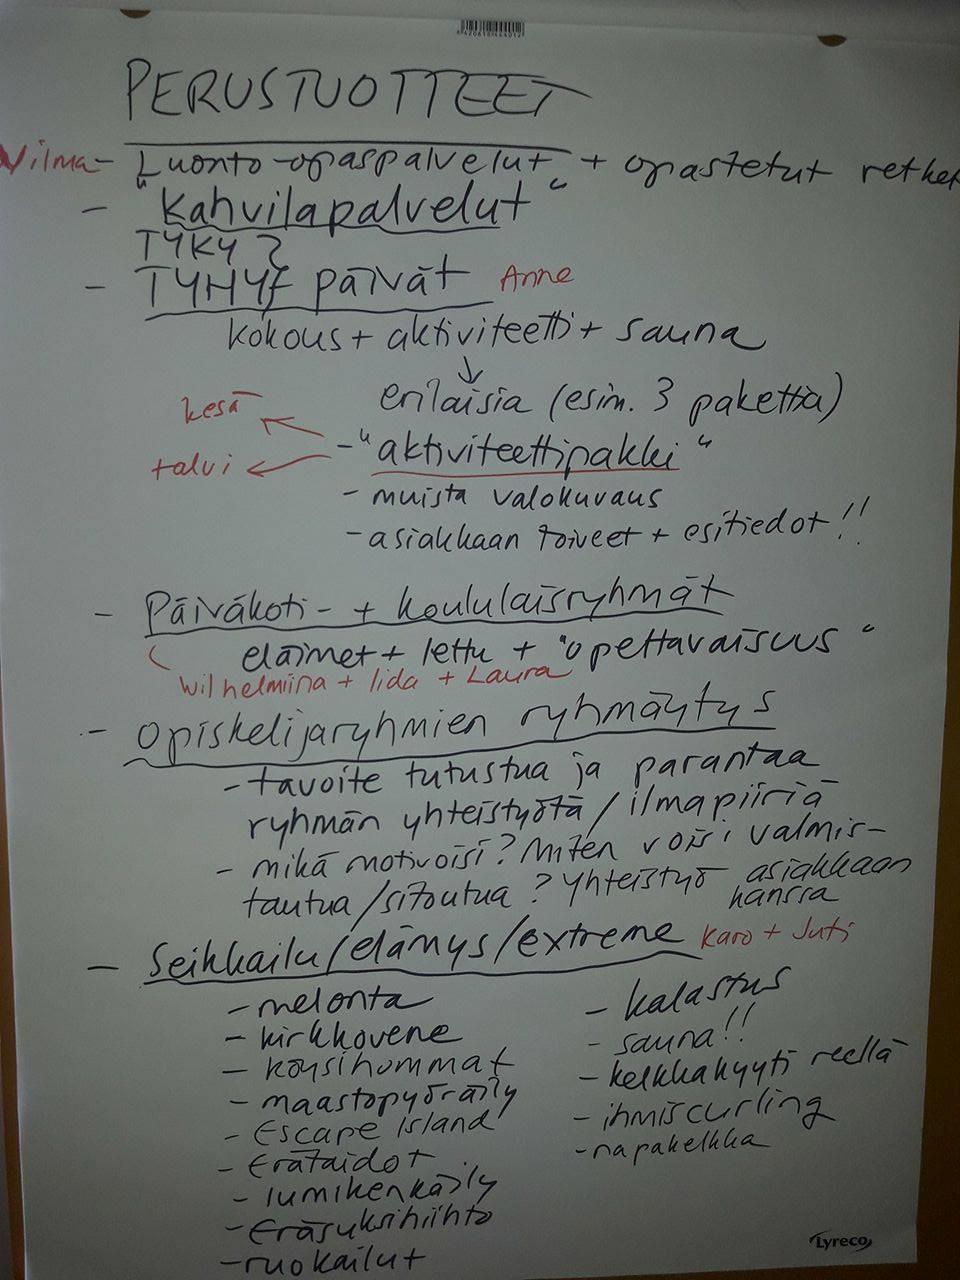 PERUSTUOTTEET
Vilma - Luonto-opaspalvelut + opastetut retket
- "Kahvilapalvelut"
TYKY?
- TYHY päivät Anne
kokous + aktiviteetti + sauna
↓
erilaisia (esim. 3 pakettia)
kesä
- "aktiviteettipakki"
talvi
- muista valokuvaus
- asiakkaan toiveet + esitiedot!!
- Päiväkoti- + koululaisryhmät
eläimet + lettu + "opettavaisuus"
Wilhelmiina + Iida + Laura
- Opiskelijaryhmien ryhmäytys
- tavoite tutustua ja parantaa
ryhmän yhteistyötä/ilmapiiriä
- mikä motivoisi? Miten voisi valmis-
tautua/sitoutua? Yhteistyö asiakkaan
hanssa
- Seikkailu/elämys/extreme Karo + Juti
- melonta
- kirkkovene
- köysihommat
- maastopyöräily
- Escape Island
- Erätaidot
- lumikenkäily
- Eräsuksihiihto
- ruokailut
- kalastus
- sauna!!
- kelkkakyyti reellä
- ihmiscurling
- napakelkka
Lyreco